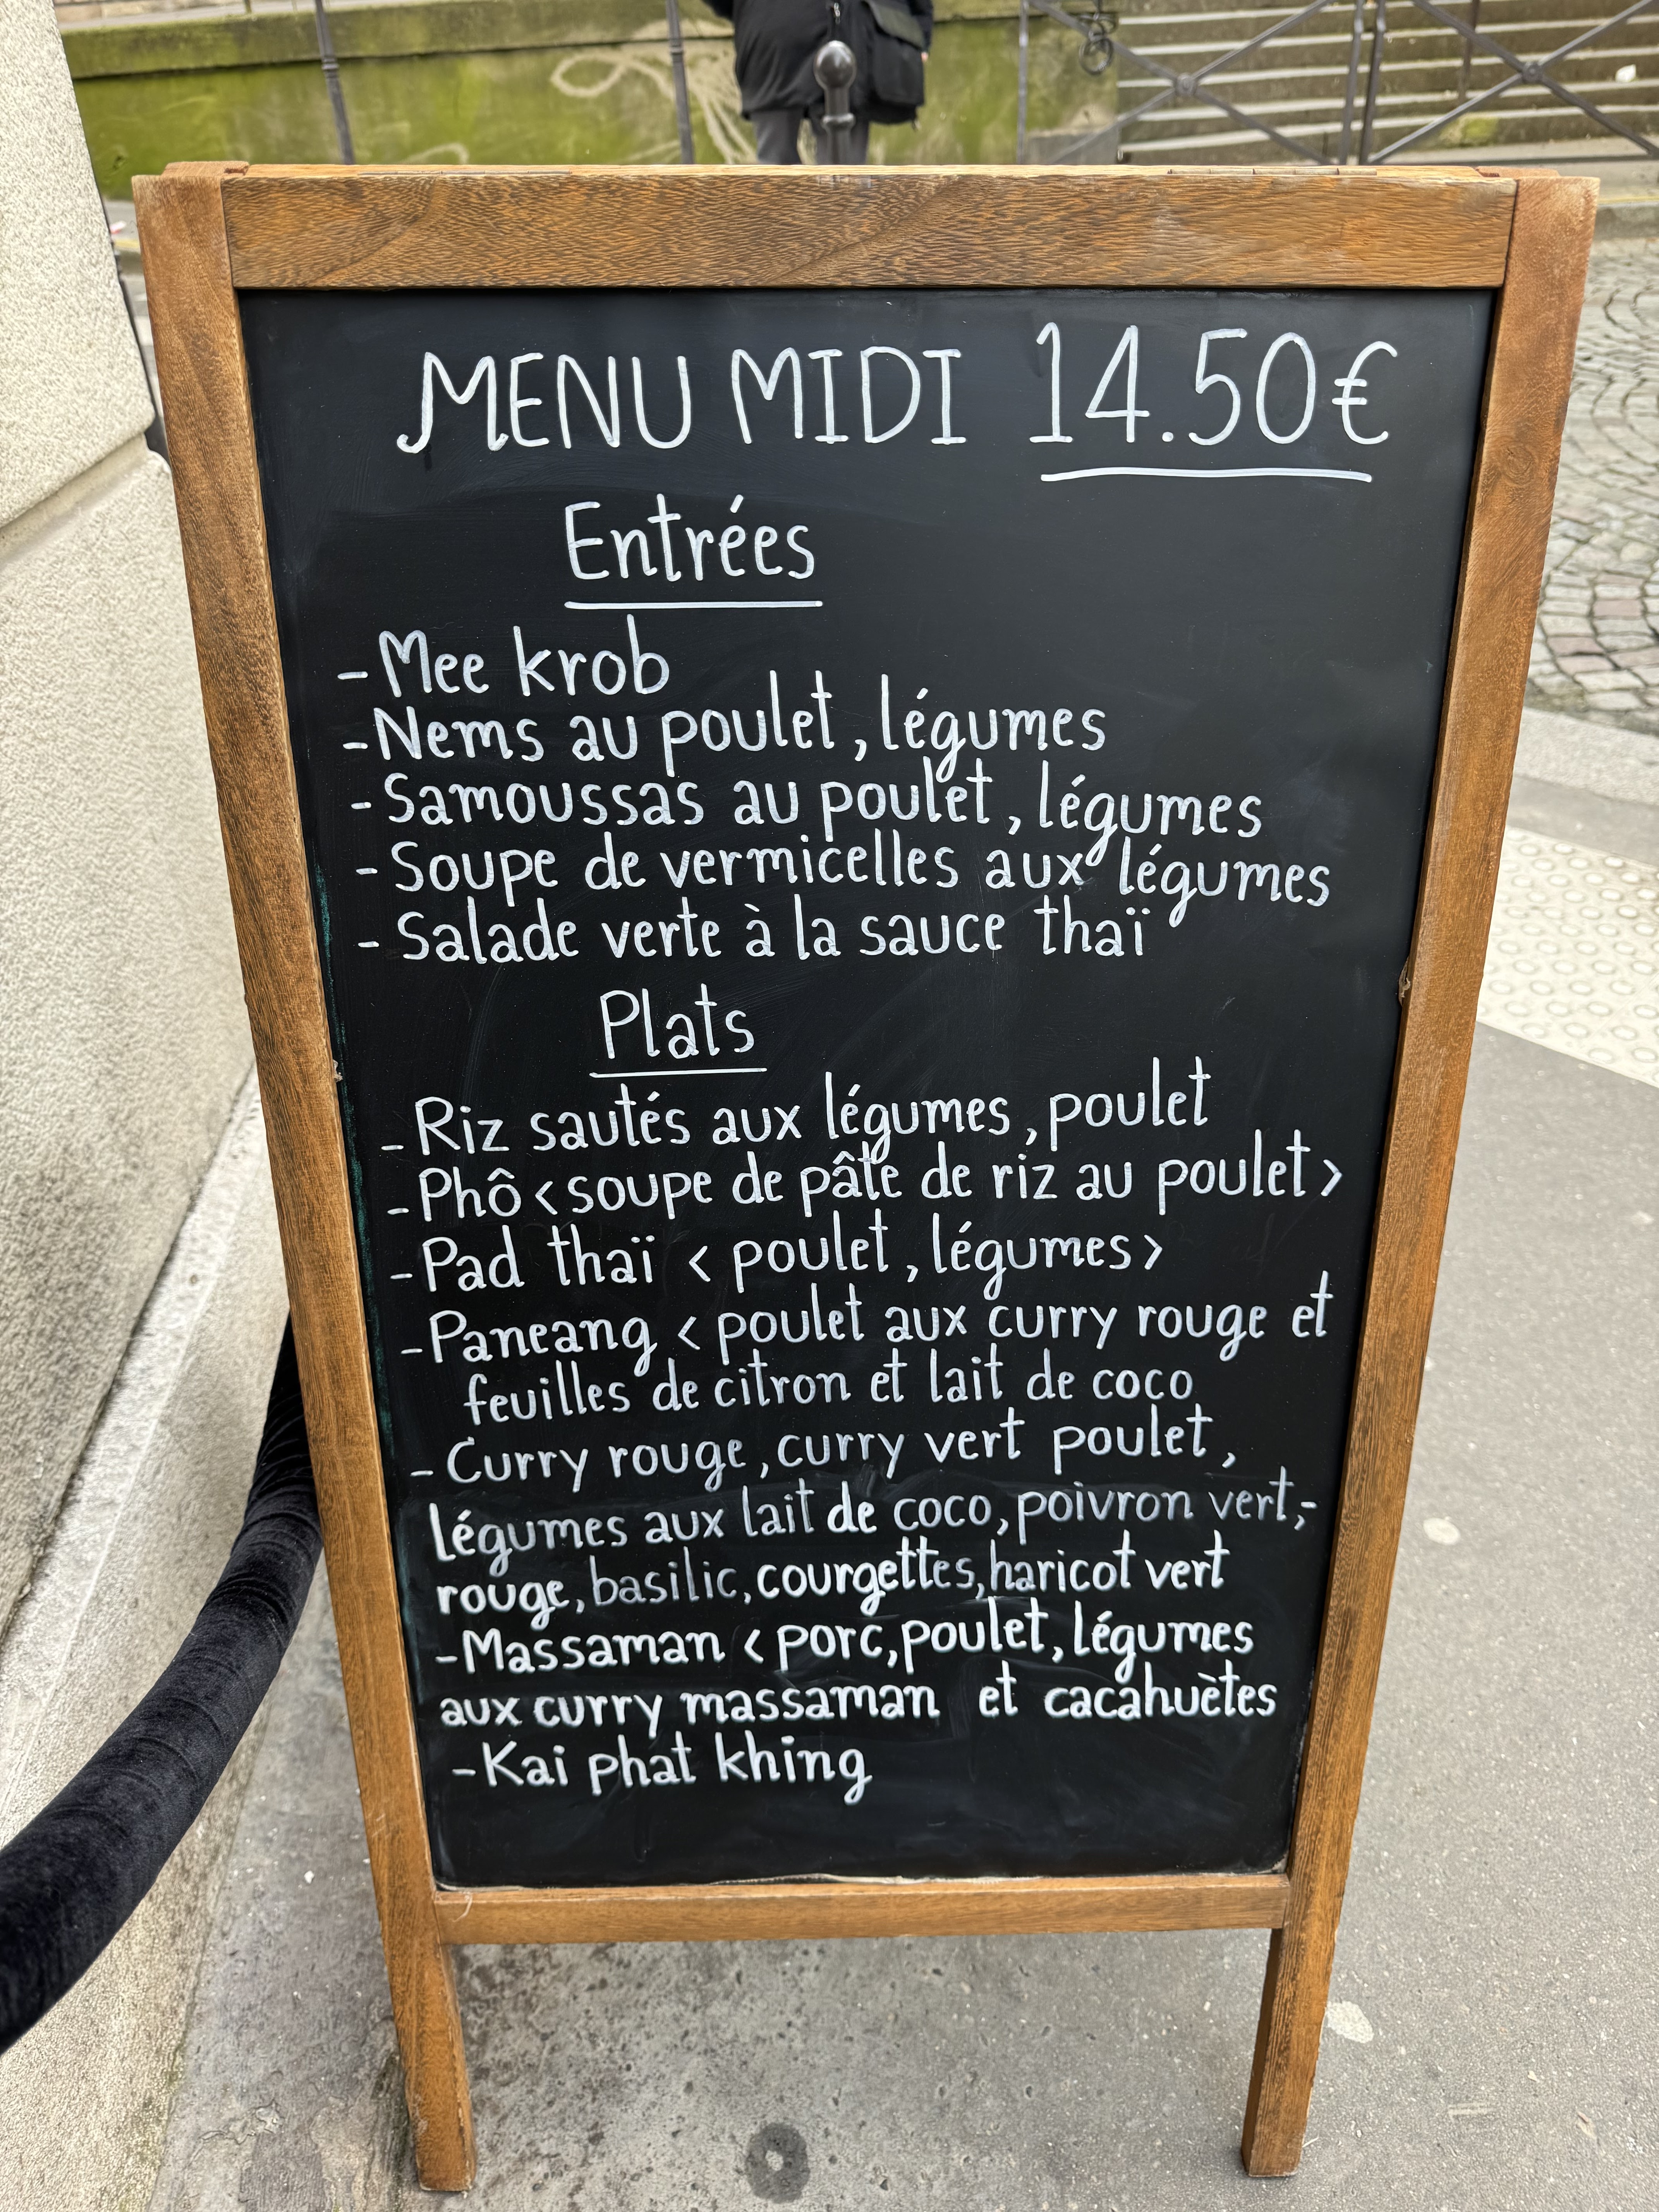 MENU MIDI 14.50€
Entrées
-Mee krob
-Nems au poulet, légumes
-Samoussas au poulet, légumes
-Soupe de vermicelles aux légumes
-Salade verte à la sauce thaï
Plats
-Riz sautés aux légumes, poulet
-Phô <soupe de pâte de riz au poulet>
-Pad thaï < poulet, légumes>
-Paneang < poulet aux curry rouge et
feuilles de citron et lait de coco
-Curry rouge, curry vert poulet,
légumes aux lait de coco, poivron vert,-
rouge, basilic, courgettes, haricot vert
-Massaman < porc, poulet, légumes
aux curry massaman et cacahuètes
-Kai phat khing